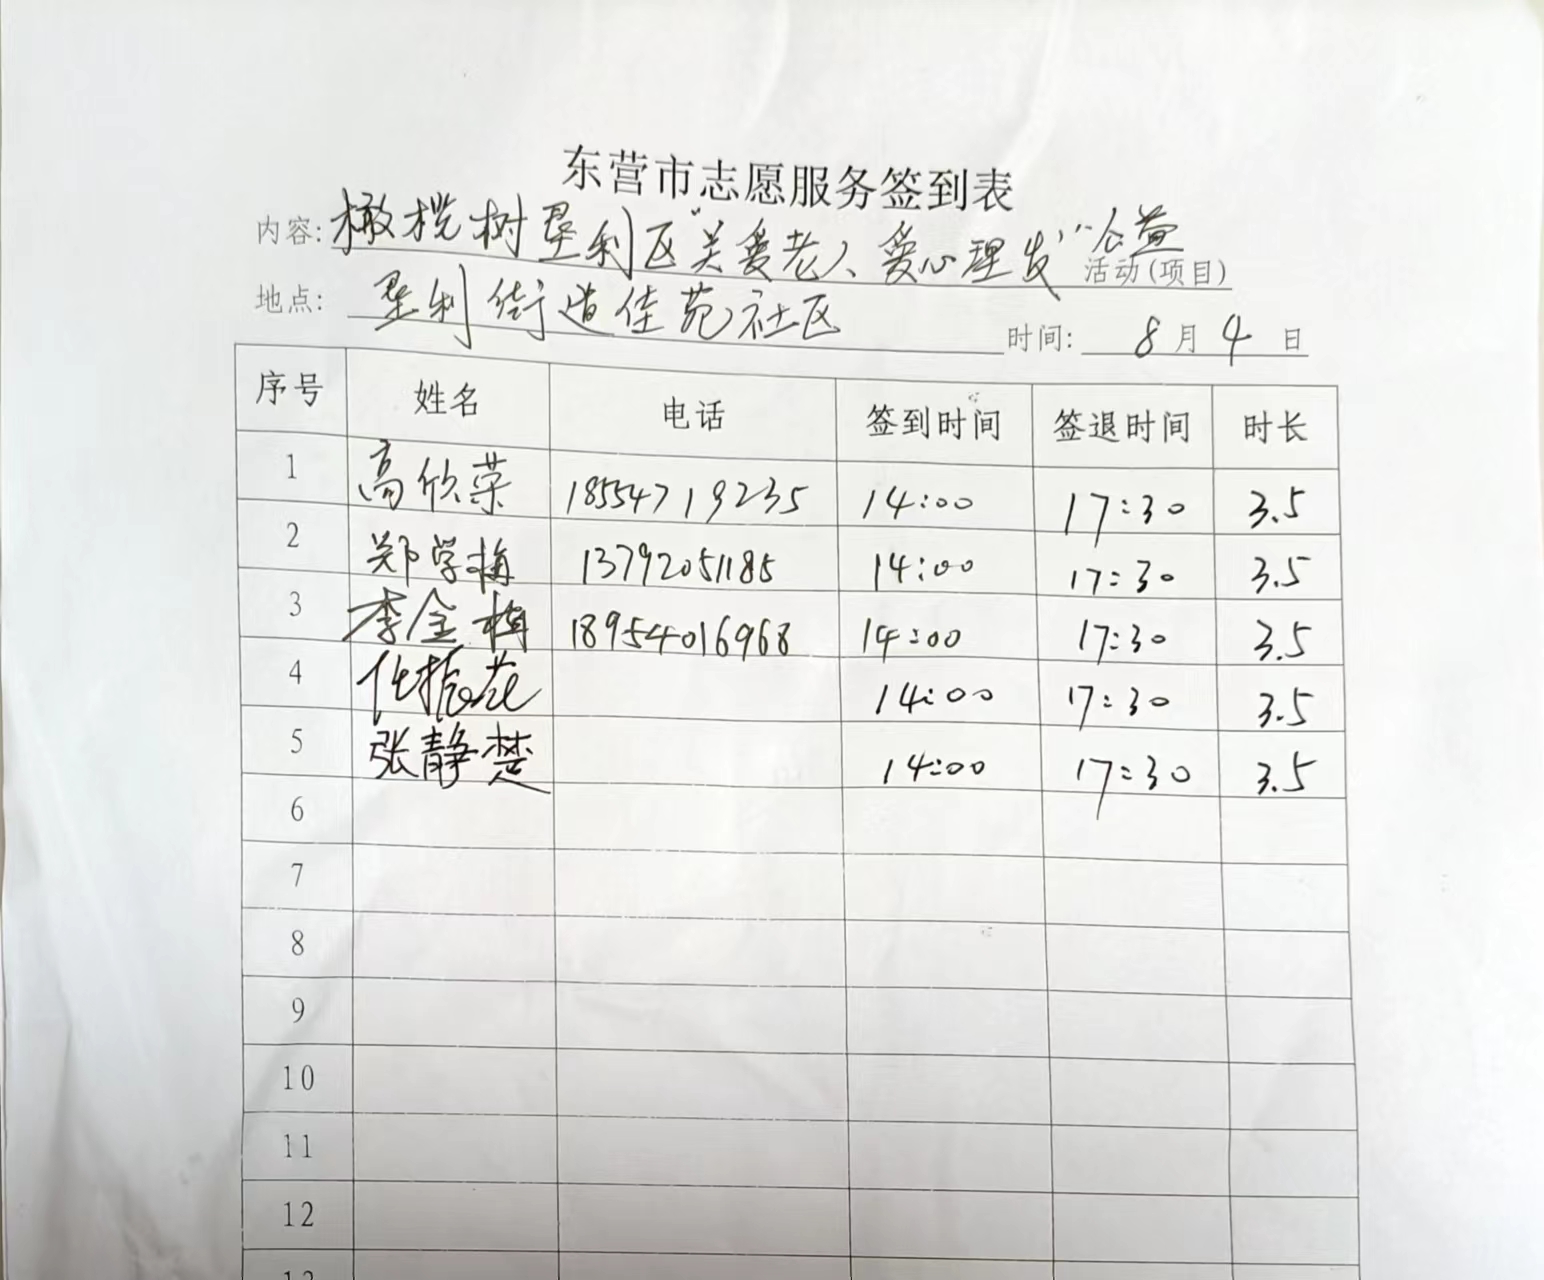 东营市志愿服务签到表
内容: 橄榄树垦利区"关爱老人、爱心理发"公益 活动(项目)
地点: 垦利街道佳苑社区
时间: 8 月 4 日
序号 姓名 电话 签到时间 签退时间 时长
1 高欣荣 18554719235 14:00 17:30 3.5
2 郑学梅 13792051185 14:00 17:30 3.5
3 李金梅 18954016968 14:00 17:30 3.5
4 任振花 14:00 17:30 3.5
5 张静楚 14:00 17:30 3.5
6
7
8
9
10
11
12
13